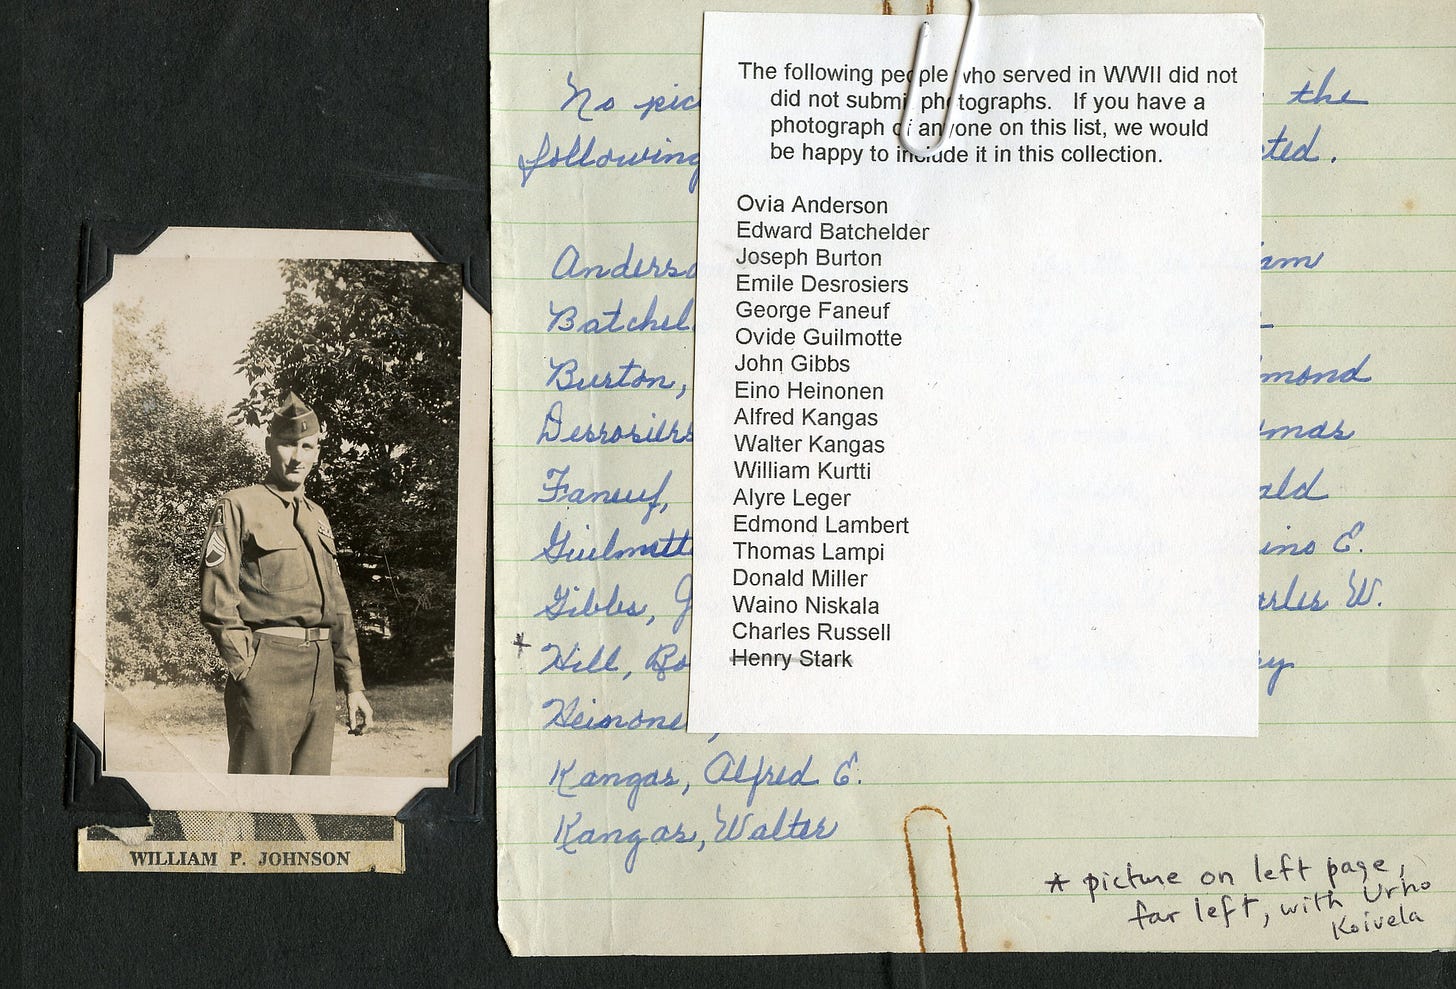 WILLIAM P. JOHNSON
The following people who served in WWII did not
did not submit photographs. If you have a
photograph of anyone on this list, we would
be happy to include it in this collection.
Ovia Anderson
Edward Batchelder
Joseph Burton
Emile Desrosiers
George Faneuf
Ovide Guilmotte
John Gibbs
Eino Heinonen
Alfred Kangas
Walter Kangas
William Kurtti
Alyre Leger
Edmond Lambert
Thomas Lampi
Donald Miller
Waino Niskala
Charles Russell
Henry Stark
No pic the
following ted.
Anderso am
Batchel
Burton, mond
Desrosiers mas
Faneuf, ald
Guilmott ino E.
Gibbs, J arles W.
* Hill, Ro y
Heinone
Kangas, Alfred E.
Kangas, Walter
* picture on left page,
far left, with Urho
Koivela